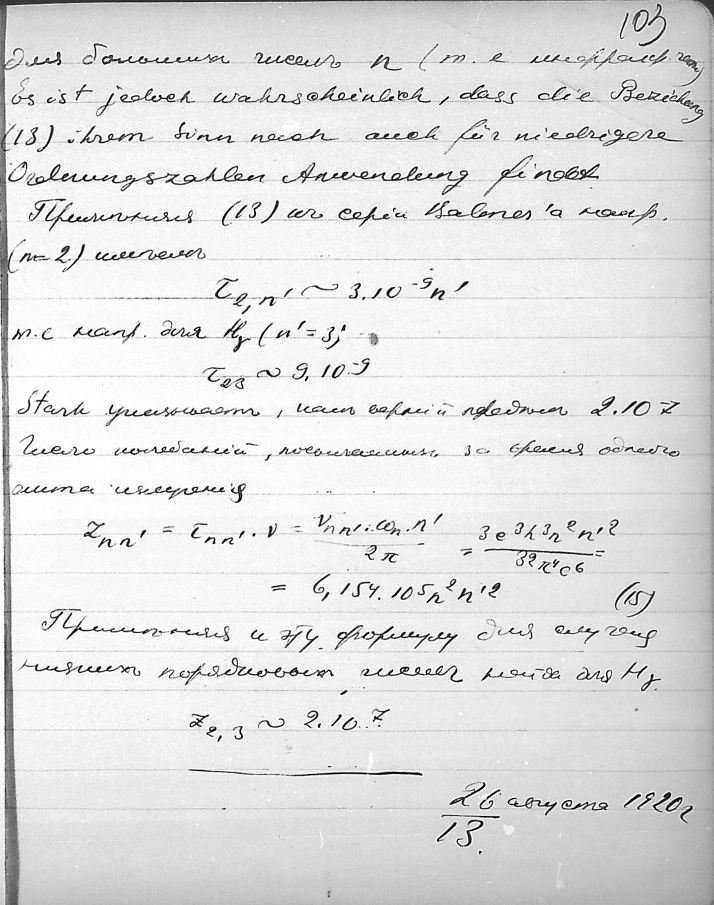 103
для большихъ чиселъ n (т. е инфракр. части)
Es ist jedoch wahrscheinlich, dass die Beziehung
(13) ihrem Sinn nach auch für niedrigere
Ordnungszahlen Anwendung findet.
Примѣняя (13) къ серіи Balmer'а напр.
(n=2) имѣемъ
τ₂,ₙ' ~ 3.10⁻⁹n'
т.е напр. для Hᵧ (n'=3)
τ₂₃ ~ 9.10⁻⁹
Stark указываетъ, какъ верхній предѣлъ 2.10⁻⁷
Число колебаній, посылаемыхъ за время одного
акта
zₙₙ' = τₙₙ'.ν = νₙₙ'.ωₙ.n' / 2π = 3c³h³n²n'² / 32π⁴e⁶ =
= 6,154.10⁵n²n'² (15)
Примѣняя и эту формулу для случая
низшихъ порядковыхъ чиселъ найдя для Hᵧ
z₂,₃ ~ 2.10⁷.
26/13. августа 1920г